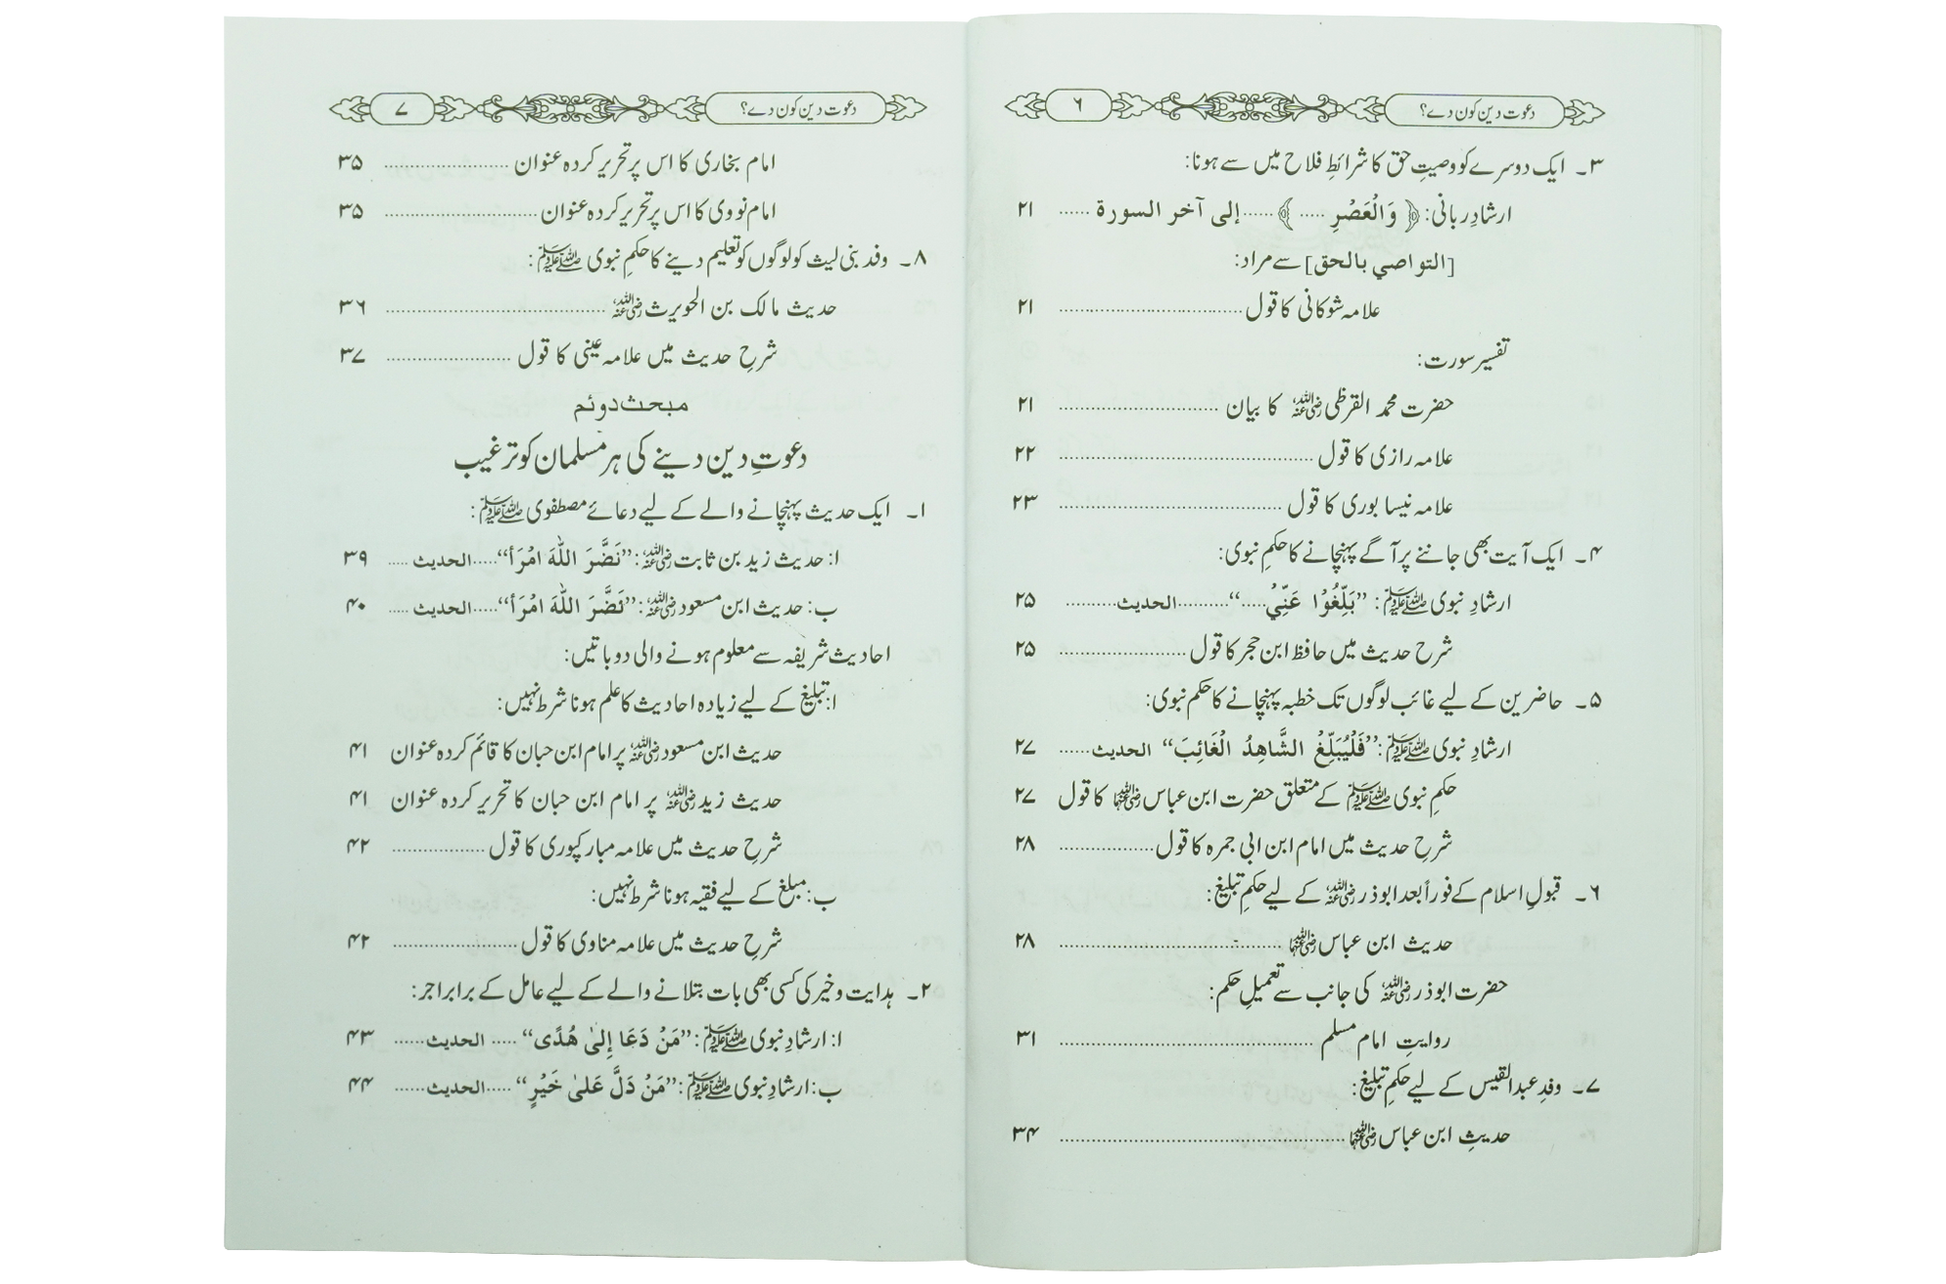 دعوت دین کون دے؟ ۶
۳۔ ایک دوسرے کو وصیتِ حق کا شرائطِ فلاح میں سے ہونا:
ارشادِ ربانی: ﴿ وَالْعَصْرِ ..... ﴾ ......إلى آخر السورة ...... ۲۱
[التواصي بالحق] سے مراد:
علامہ شوکانی کا قول ...... ۲۱
تفسیر سورت:
حضرت محمد القرظی رضی اللہ عنہ کا بیان ...... ۲۱
علامہ رازی کا قول ...... ۲۲
علامہ نیسا بوری کا قول ...... ۲۳
۴۔ ایک آیت بھی جاننے پر آگے پہنچانے کا حکمِ نبوی:
ارشادِ نبوی ﷺ: ”بَلِّغُوْا عَنِّيْ.....“ ..........الحديث.......... ۲۵
شرح حدیث میں حافظ ابن حجر کا قول ...... ۲۵
۵۔ حاضرین کے لیے غائب لوگوں تک خطبہ پہنچانے کا حکم نبوی:
ارشادِ نبوی ﷺ: ”فَلْيُبَلِّغْ الشَّاهِدُ الْغَائِبَ“ الحديث...... ۲۷
حکمِ نبوی ﷺ کے متعلق حضرت ابن عباس رضی اللہ عنہما کا قول ۲۷
شرحِ حدیث میں امام ابن ابی جمرہ کا قول ...... ۲۸
۶۔ قبولِ اسلام کے فوراً بعد ابوذر رضی اللہ عنہ کے لیے حکمِ تبلیغ:
حدیث ابن عباس رضی اللہ عنہما ...... ۲۸
حضرت ابوذر رضی اللہ عنہ کی جانب سے تعمیلِ حکم:
روایتِ امام مسلم ...... ۳۱
۷۔ وفدِ عبدالقیس کے لیے حکمِ تبلیغ:
حدیثِ ابن عباس رضی اللہ عنہما ...... ۳۴
دعوت دین کون دے؟ ۷
امام بخاری کا اس پر تحریر کردہ عنوان ...... ۳۵
امام نووی کا اس پر تحریر کردہ عنوان ...... ۳۵
۸۔ وفد بنی لیث کو لوگوں کو تعلیم دینے کا حکمِ نبوی ﷺ:
حدیث مالک بن الحویرث رضی اللہ عنہ ...... ۳۶
شرحِ حدیث میں علامہ عینی کا قول ...... ۳۷
مبحث دوئم
دعوتِ دین دینے کی ہر مسلمان کو ترغیب
۱۔ ایک حدیث پہنچانے والے کے لیے دعائے مصطفوی ﷺ:
ا: حدیث زید بن ثابت رضی اللہ عنہ: ”نَضَّرَ اللهَ امْرَأ“.....الحديث ..... ۳۹
ب: حدیث ابن مسعود رضی اللہ عنہ: ”نَضَّرَ اللهَ امْرَأ“.....الحديث ..... ۴۰
احادیث شریفہ سے معلوم ہونے والی دو باتیں:
ا: تبلیغ کے لیے زیادہ احادیث کا علم ہونا شرط نہیں:
حدیث ابن مسعود رضی اللہ عنہ پر امام ابن حبان کا قائم کردہ عنوان ۴۱
حدیث زید رضی اللہ عنہ پر امام ابن حبان کا تحریر کردہ عنوان ۴۱
شرحِ حدیث میں علامہ مبارکپوری کا قول ...... ۴۲
ب: مبلغ کے لیے فقیہ ہونا شرط نہیں:
شرحِ حدیث میں علامہ مناوی کا قول ...... ۴۲
۲۔ ہدایت و خیر کی کسی بھی بات بتلانے والے کے لیے عامل کے برابر اجر:
ا: ارشادِ نبوی ﷺ: ”مَنْ دَعَا إِلىٰ هُدًى“ ..... الحديث...... ۴۳
ب: ارشادِ نبوی ﷺ: ”مَنْ دَلَّ عَلىٰ خَيْرٍ“ .....الحديث...... ۴۴